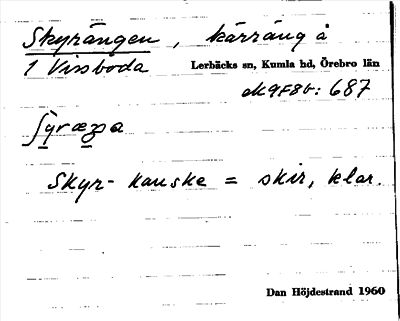 Skyrängen, kärräng å
1 Vissboda Lerbäcks sn, Kumla hd, Örebro län
M9F8b: 687
Skyr- kanske = skir, klar.
Dan Höjdestrand 1960